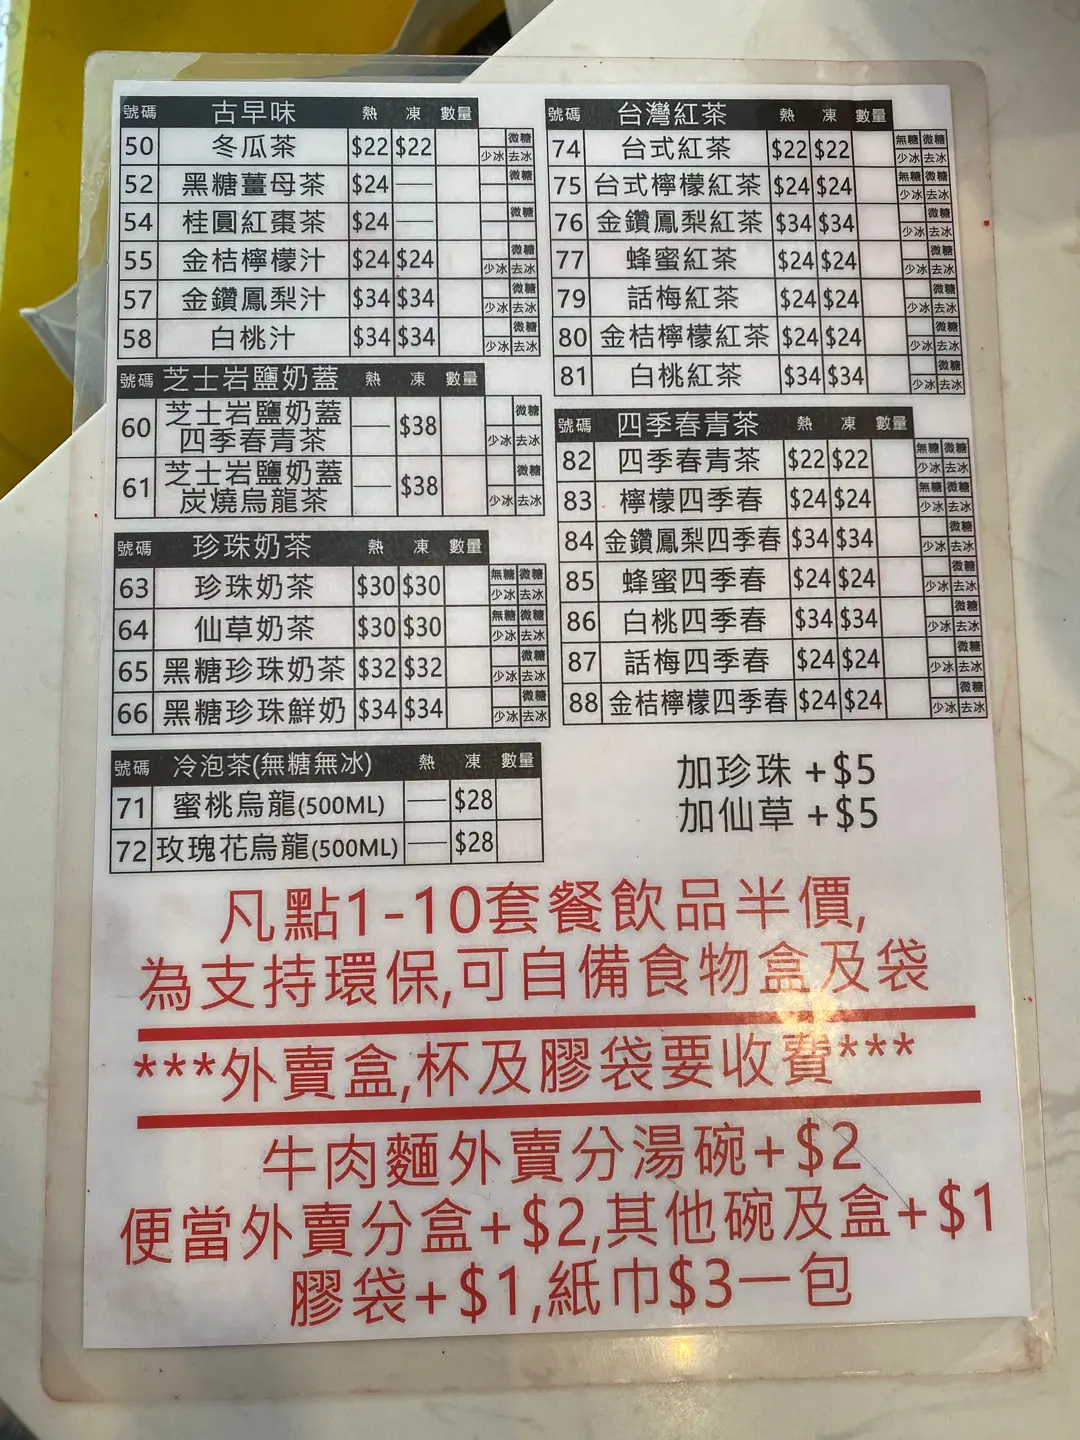 號碼 古早味 熱 凍 數量
50 冬瓜茶 $22 $22 微糖 少冰 去冰
52 黑糖薑母茶 $24 — 微糖
54 桂圓紅棗茶 $24 — 微糖
55 金桔檸檬汁 $24 $24 微糖 少冰 去冰
57 金鑽鳳梨汁 $34 $34 微糖 少冰 去冰
58 白桃汁 $34 $34 微糖 少冰 去冰
號碼 芝士岩鹽奶蓋 熱 凍 數量
60 芝士岩鹽奶蓋 四季春青茶 — $38 微糖 少冰 去冰
61 芝士岩鹽奶蓋 炭燒烏龍茶 — $38 微糖 少冰 去冰
號碼 珍珠奶茶 熱 凍 數量
63 珍珠奶茶 $30 $30 無糖 微糖 少冰 去冰
64 仙草奶茶 $30 $30 無糖 微糖 少冰 去冰
65 黑糖珍珠奶茶 $32 $32 微糖 少冰 去冰
66 黑糖珍珠鮮奶 $34 $34 微糖 少冰 去冰
號碼 冷泡茶(無糖無冰) 熱 凍 數量
71 蜜桃烏龍(500ML) — $28
72 玫瑰花烏龍(500ML) — $28
號碼 台灣紅茶 熱 凍 數量
74 台式紅茶 $22 $22 無糖 微糖 少冰 去冰
75 台式檸檬紅茶 $24 $24 無糖 微糖 少冰 去冰
76 金鑽鳳梨紅茶 $34 $34 微糖 少冰 去冰
77 蜂蜜紅茶 $24 $24 微糖 少冰 去冰
79 話梅紅茶 $24 $24 微糖 少冰 去冰
80 金桔檸檬紅茶 $24 $24 微糖 少冰 去冰
81 白桃紅茶 $34 $34 微糖 少冰 去冰
號碼 四季春青茶 熱 凍 數量
82 四季春青茶 $22 $22 無糖 微糖 少冰 去冰
83 檸檬四季春 $24 $24 無糖 微糖 少冰 去冰
84 金鑽鳳梨四季春 $34 $34 微糖 少冰 去冰
85 蜂蜜四季春 $24 $24 微糖 少冰 去冰
86 白桃四季春 $34 $34 微糖 少冰 去冰
87 話梅四季春 $24 $24 微糖 少冰 去冰
88 金桔檸檬四季春 $24 $24 微糖 少冰 去冰
加珍珠 +$5
加仙草 +$5
凡點1-10套餐飲品半價,
為支持環保,可自備食物盒及袋
***外賣盒,杯及膠袋要收費***
牛肉麵外賣分湯碗+$2
便當外賣分盒+$2,其他碗及盒+$1
膠袋+$1,紙巾$3一包